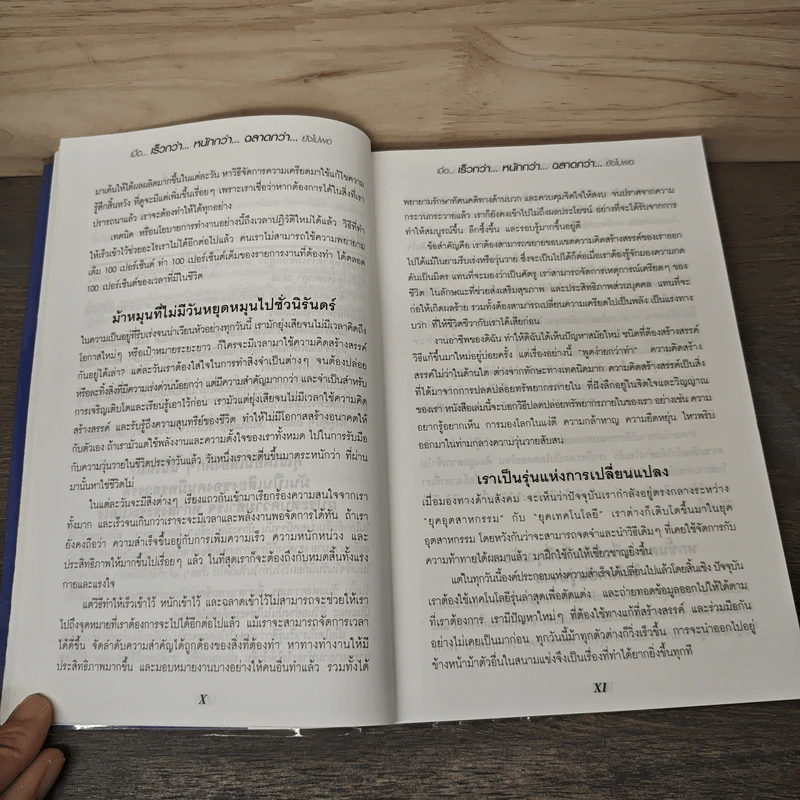 เมื่อ... เร็วกว่า... หนักกว่า... ฉลาดกว่า... ยังไม่พอ
มาเค้นให้ได้ผลผลิตมากขึ้นในแต่ละวัน หาวิธีจัดการความเครียดมาใช้แก้ไขความ
รู้สึกสิ้นหวัง ที่ดูจะมีแต่เพิ่มขึ้นเรื่อยๆ เพราะเราเชื่อว่าหากต้องการได้ในสิ่งที่เรา
ปรารถนาแล้ว เราจะต้องทำให้ได้ทุกอย่าง
เทคนิค หรือนโยบายการทำงานอย่างนี้ถึงเวลาปฏิวัติใหม่ได้แล้ว วิธีที่ทำ
ให้เร็วเข้าไว้ช่วยอะไรเราไม่ได้อีกต่อไปแล้ว คนเราไม่สามารถใช้ความพยายาม
เต็ม 100 เปอร์เซ็นต์ ทำ 100 เปอร์เซ็นต์เต็มของรายการงานที่ต้องทำ ได้ตลอด
100 เปอร์เซ็นต์ของเวลาที่มีในชีวิต
ม้าหมุนที่ไม่มีวันหยุดหมุนไปชั่วนิรันดร์
ในความเป็นอยู่ที่รีบเร่งจนน่าเวียนหัวอย่างทุกวันนี้ เรามักยุ่งเสียจนไม่มีเวลาคิดถึง
โอกาสใหม่ๆ หรือเป้าหมายระยะยาว ก็ใครจะมีเวลามาใช้ความคิดสร้างสรรค์
กันอยู่ได้เล่า? แต่ละวันเราต้องใส่ใจในการทำสิ่งจำเป็นต่างๆ จนต้องปล่อย
หรือละทิ้งสิ่งที่มีความเร่งด่วนน้อยกว่า แต่มีความสำคัญมากกว่า และจำเป็นสำหรับ
การเจริญเติบโตและเรียนรู้เอาไว้ก่อน เรามัวแต่ยุ่งเสียจนไม่มีเวลาใช้ความคิด
สร้างสรรค์ และรับรู้ถึงความสุนทรีย์ของชีวิต ทำให้ไม่มีโอกาสสร้างอนาคตให้
กับตัวเอง ถ้าเรามัวแต่ใช้พลังงานและความตั้งใจของเราทั้งหมด ไปในการรับมือ
กับความวุ่นวายในชีวิตประจำวันแล้ว วันหนึ่งเราจะตื่นขึ้นมาตระหนักว่า ที่ผ่าน
มานั้นหาใช่ชีวิตไม่
ในแต่ละวันจะมีสิ่งต่างๆ เรียงแถวกันเข้ามาเรียกร้องความสนใจจากเรา
ทั้งมาก และเร็วจนเกินกว่าเราจะจะมีเวลาและพลังงานพอจัดการได้ทัน ถ้าเรา
ยังคงถือว่า ความสำเร็จขึ้นอยู่กับการเพิ่มความเร็ว ความหนักหน่วง และ
ประสิทธิภาพให้มากขึ้นไปเรื่อยๆ แล้ว ในที่สุดเราก็จะต้องถึงกับหมดสิ้นทั้งแรง
กายและแรงใจ
แต่วิธีทำให้เร็วเข้าไว้ หนักเข้าไว้ และฉลาดเข้าไว้ไม่สามารถจะช่วยให้เรา
ไปถึงจุดหมายที่เราต้องการจะไปได้อีกต่อไปแล้ว แม้เราจะสามารถจัดการเวลา
ได้ดีขึ้น จัดลำดับความสำคัญได้ถูกต้องของสิ่งที่ต้องทำ หาทางทำงานให้มี
ประสิทธิภาพมากขึ้น และมอบหมายงานบางอย่างให้คนอื่นทำแล้ว รวมทั้งได้
X
เมื่อ... เร็วกว่า... หนักกว่า... ฉลาดกว่า... ยังไม่พอ
พยายามรักษาทัศนคติทางด้านบวก และควบคุมจิตใจให้สงบ จนปราศจากความ
กระวนกระวายแล้ว เราก็ยังคงเข้าไปไม่ถึงผลประโยชน์ อย่างที่จะได้รับจากการ
ทำให้สมบูรณ์ขึ้น ลึกซึ้งขึ้น และรอบรู้มากขึ้นอยู่ดี
ข้อสำคัญคือ เราต้องสามารถขยายขอบเขตความคิดสร้างสรรค์ของเราออก
ไปได้แม้ในยามรีบเร่งหรือวุ่นวาย ซึ่งจะเป็นไปได้ก็ต่อเมื่อเราต้องรู้จักมองความกด
ดันเป็นมิตร แทนที่จะมองว่าเป็นศัตรู เราสามารถจัดการเหตุการณ์เครียดๆ ของ
ชีวิต ในลักษณะที่ช่วยส่งเสริมสุขภาพ และประสิทธิภาพส่วนบุคคล แทนที่จะ
ก่อให้เกิดผลร้าย รวมทั้งต้องสามารถเปลี่ยนความเครียดไปเป็นพลัง เป็นแรงทาง
บวก ที่ให้ชีวิตชีวากับเราได้เสียก่อน
งานอาชีพของดิฉัน ทำให้ดิฉันได้เห็นปัญหาสมัยใหม่ ชนิดที่ต้องสร้างสรรค์
วิธีแก้ขึ้นมาใหม่อยู่บ่อยครั้ง แต่เรื่องอย่างนี้ "พูดง่ายกว่าทำ" ความคิดสร้าง
สรรค์ไม่ว่าในด้านใด ต่างจากทักษะทางเทคนิคมาก ความคิดสร้างสรรค์เป็นสิ่ง
ที่ได้มาจากการปลดปล่อยทรัพยากรภายใน ที่ฝังลึกอยู่ในจิตใจและวิญญาณ
ของเรา หนังสือเล่มนี้จะบอกวิธีปลดปล่อยทรัพยากรภายในของเรา อย่างเช่น ความ
อยากรู้อยากเห็น การมองโลกในแง่ดี ความกล้าหาญ ความยืดหยุ่น ไหวพริบ
ออกมาในท่ามกลางความวุ่นวายสับสน
เราเป็นรุ่นแห่งการเปลี่ยนแปลง
เมื่อมองทางด้านสังคม จะเห็นว่าปัจจุบันเรากำลังอยู่ตรงกลางระหว่าง
"ยุคอุตสาหกรรม" กับ "ยุคเทคโนโลยี" เราต่างก็เติบโตขึ้นมาในยุค
อุตสาหกรรม โดยหวังกันว่าจะสามารถจดจำและนำวิธีเดิมๆ ที่เคยใช้จัดการกับ
ความท้าทายได้ผลมาแล้ว มาฝึกใช้กันให้เชี่ยวชาญยิ่งขึ้น
แต่ในทุกวันนี้องค์ประกอบแห่งความสำเร็จได้เปลี่ยนไปแล้วโดยสิ้นเชิง ปัจจุบัน
เราต้องใช้เทคโนโลยีรุ่นล่าสุดเพื่อตัดแต่ง และถ่ายทอดข้อมูลออกไปให้ได้ตาม
ที่เราต้องการ เรามีปัญหาใหม่ๆ ที่ต้องใช้ทางแก้ที่สร้างสรรค์ และร่วมมือกัน
อย่างไม่เคยเป็นมาก่อน ทุกวันนี้ม้าทุกตัวต่างก็วิ่งเร็วขึ้น การจะนำออกไปอยู่
ข้างหน้าม้าตัวอื่นในสนามแข่งจึงเป็นเรื่องที่ทำได้ยากยิ่งขึ้นทุกที
XI